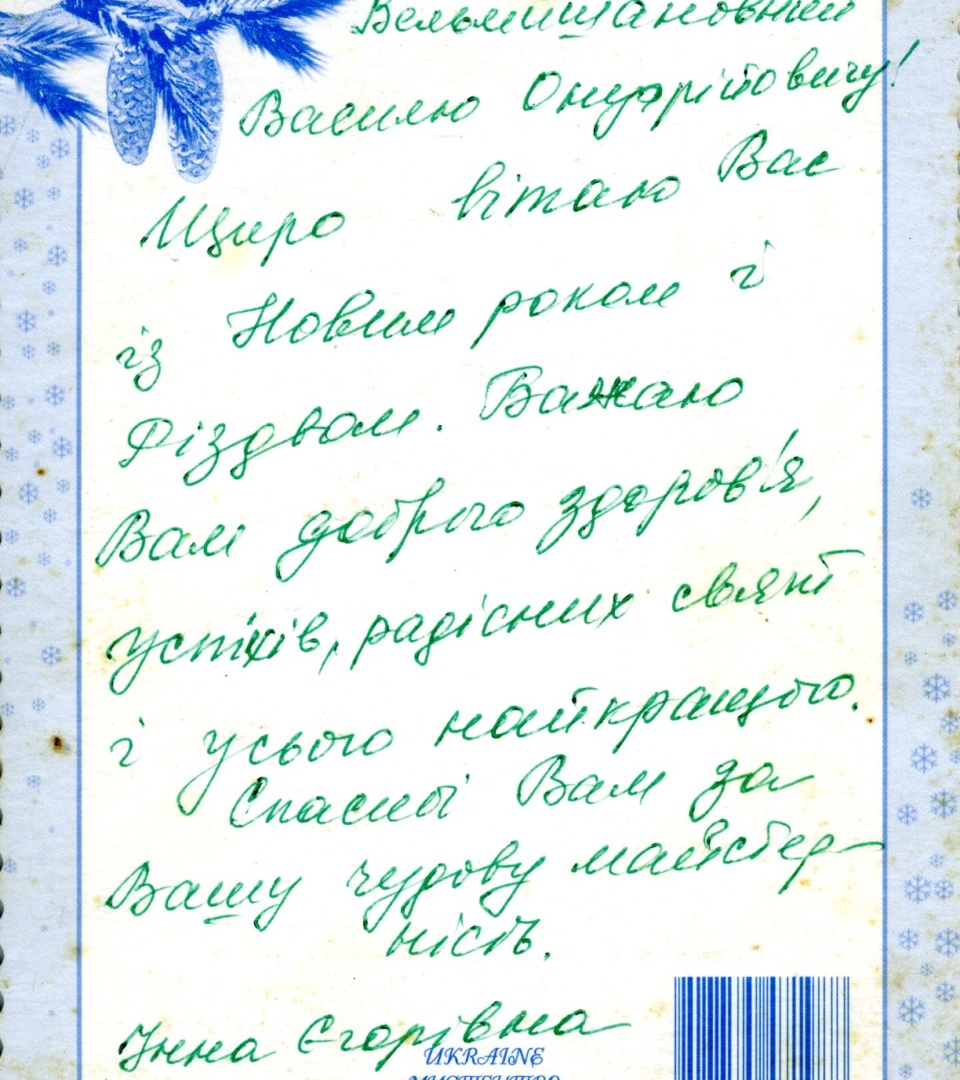 Вельмишановний
Василю Онуфрійовичу!
Щиро вітаю Вас
із Новим роком і
Різдвом. Бажаю
Вам доброго здоров'я,
успіхів, радісних свят
і усього найкращого.
Спасибі Вам за
Вашу чудову майстер-
ність.
Інна Єгорівна
UKRAINE
МИСТЕЦТВО